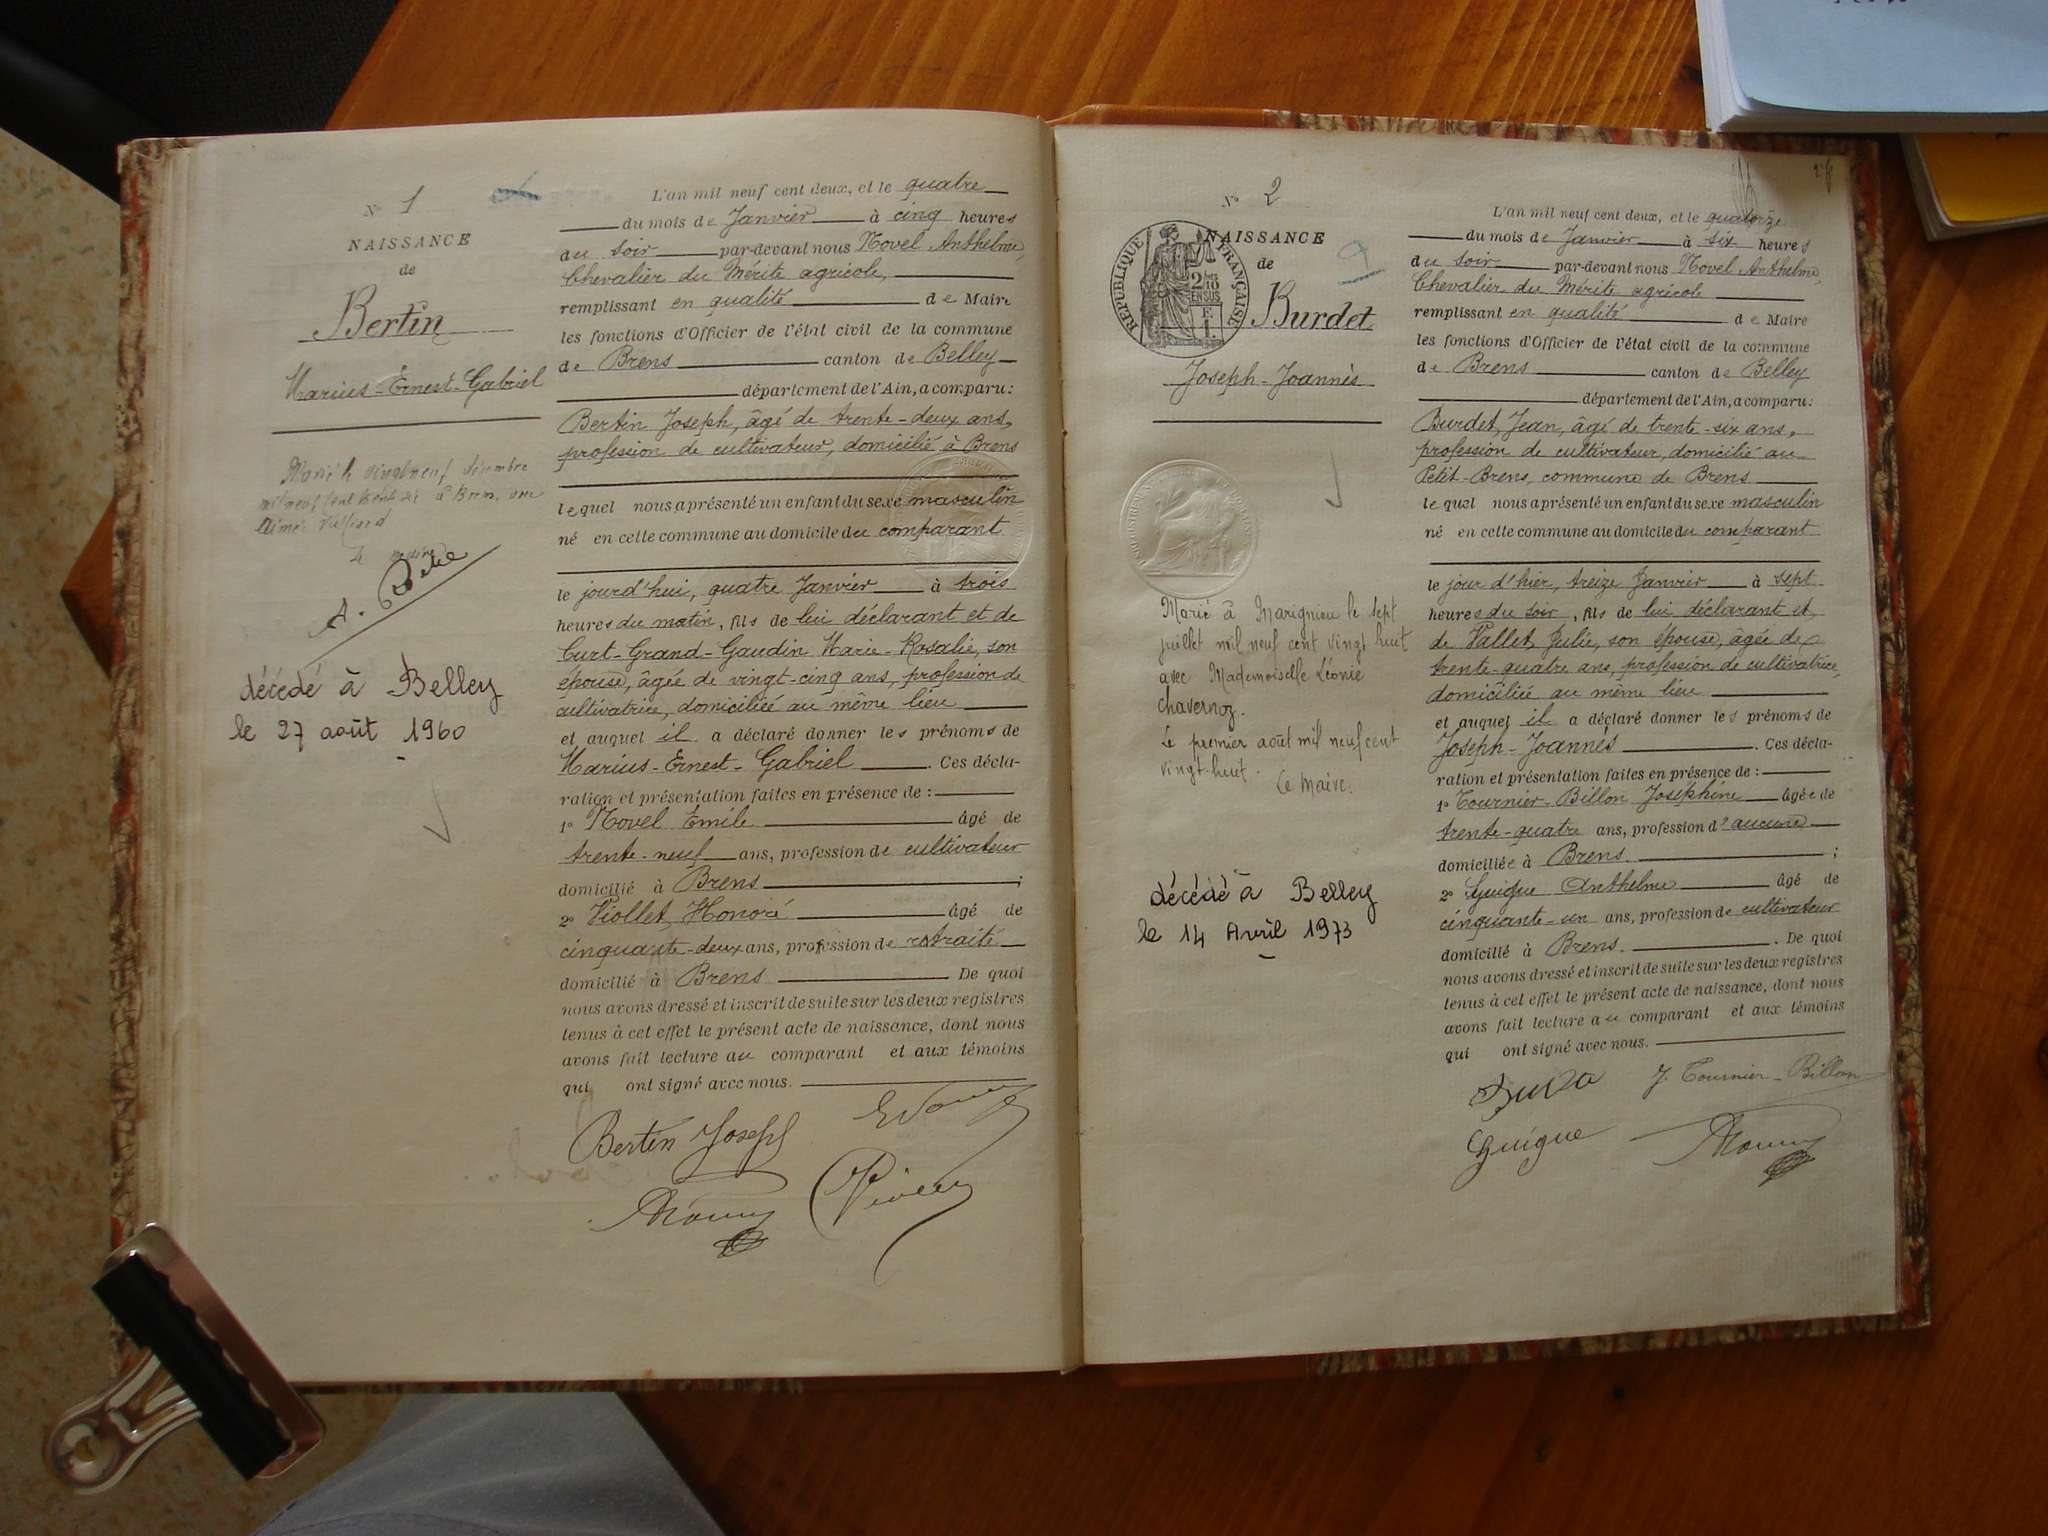 N° 1
NAISSANCE
de
Bertin
Marius-Ernest-Gabriel
Marié le vingt neuf décembre
mil neuf cent à Brens avec
Aimée
décédé à Belley
le 27 août 1960
L'an mil neuf cent deux, et le quatre
du mois de Janvier à cinq heures
du soir par-devant nous Novel Anthelme,
Chevalier du Mérite agricole,
remplissant en qualité de Maire
les fonctions d'Officier de l'état civil de la commune
de Brens canton de Belley
département de l'Ain, a comparu :
Bertin Joseph, âgé de trente-deux ans,
profession de cultivateur, domicilié à Brens
lequel nous a présenté un enfant du sexe masculin
né en cette commune au domicile du comparant
le jourd'hui, quatre Janvier à trois
heures du matin, fils de lui déclarant et de
Curt-Grand-Gaudin Marie-Rosalie, son
épouse, âgée de vingt-cinq ans, profession de
cultivatrice, domiciliée au même lieu
et auquel il a déclaré donner les prénoms de
Marius-Ernest-Gabriel. Ces décla-
ration et présentation faites en présence de :
1° Novel Emile âgé de
trente-neuf ans, profession de cultivateur
domicilié à Brens ;
2° Viollet Honoré âgé de
cinquante-deux ans, profession de retraité
domicilié à Brens De quoi
nous avons dressé et inscrit de suite sur les deux registres
tenus à cet effet le présent acte de naissance, dont nous
avons fait lecture au comparant et aux témoins
qui ont signé avec nous.
Bertin Joseph
N° 2
NAISSANCE
de
RÉPUBLIQUE FRANÇAISE
2/10 EN SUS
Burdet
Joseph-Joannès
Marié à Marignieu le sept
juillet mil neuf cent vingt huit
avec Mademoiselle Léonie
Chavernoz.
Le premier août mil neuf cent
vingt-huit.
Le Maire.
décédé à Belley
le 14 Avril 1973
L'an mil neuf cent deux, et le quatorze
du mois de Janvier à six heures
du soir par-devant nous Novel Anthelme,
Chevalier du Mérite agricole
remplissant en qualité de Maire
les fonctions d'Officier de l'état civil de la commune
de Brens canton de Belley
département de l'Ain, a comparu :
Burdet, Jean, âgé de trente-six ans,
profession de cultivateur, domicilié au
Petit-Brens, commune de Brens
lequel nous a présenté un enfant du sexe masculin
né en cette commune au domicile du comparant
le jour d'hier, treize Janvier à sept
heures du soir, fils de lui déclarant et
de Vallet, Julie, son épouse, âgée de
trente-quatre ans, profession de cultivatrice,
domiciliée au même lieu
et auquel il a déclaré donner les prénoms de
Joseph-Joannès. Ces décla-
ration et présentation faites en présence de :
1° Tournier-Billon Joséphine âgée de
trente-quatre ans, profession d'aucune
domiciliée à Brens. ;
2° Guigue Anthelme âgé de
cinquante-un ans, profession de cultivateur
domicilié à Brens. De quoi
nous avons dressé et inscrit de suite sur les deux registres
tenus à cet effet le présent acte de naissance, dont nous
avons fait lecture au comparant et aux témoins
qui ont signé avec nous.
J. Tournier-Billon
Guigue